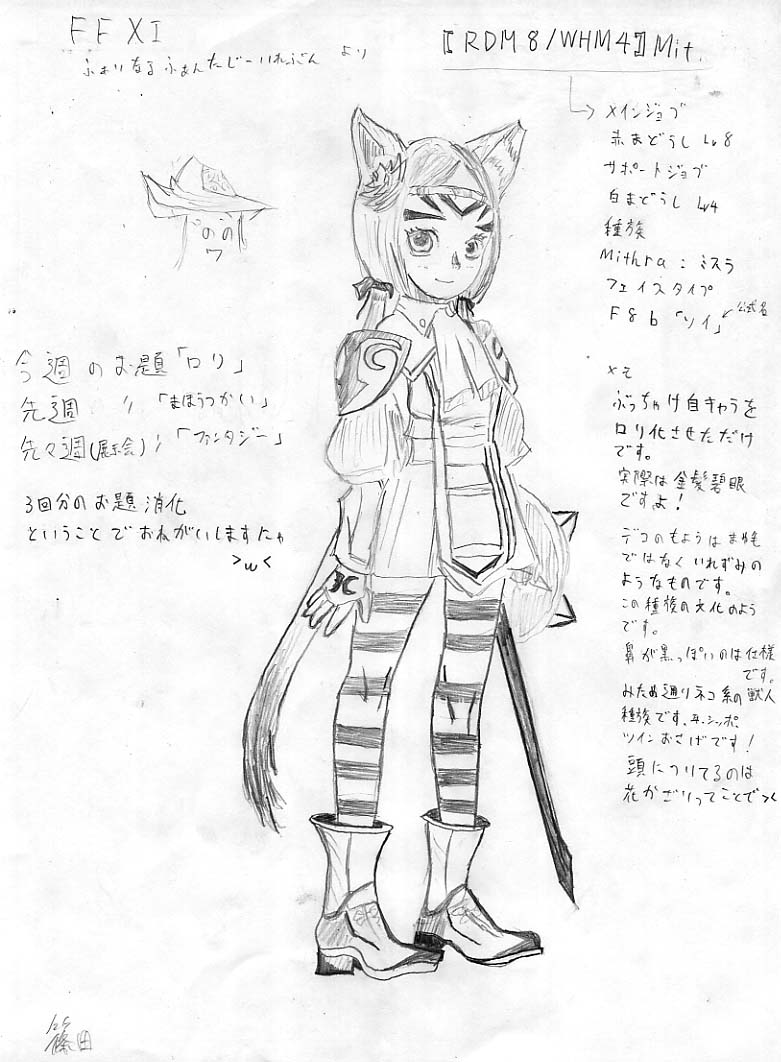 FFXI
ふぁいなるふぁんたじーいれぶん より
【RDM8/WHM4】Mit.
メインジョブ
赤まどうし Lv8
サポートジョブ
白まどうし Lv4
種族
Mithra:ミスラ
フェイスタイプ
F8b「ソイ」
公式名
今週のお題「ロリ」
先週 〃 「まほうつかい」
先々週(展示会)〃「ファンタジー」
3回分のお題消化
ということでおねがいしますにゃ
>w<
メモ
ぶっちゃけ自キャラを
ロリ化させただけ
です。
実際は金髪碧眼
ですよ!
デコのもようはまゆ毛
ではなくいれずみの
ようなものです。
この種族の文化のよう
です。
鼻が黒っぽいのは仕様
です。
みため通りネコ系の獣人
種族です、シッポ
ツインおさげです!
頭につけてるのは
花かざりってことで><
1/25
篠田